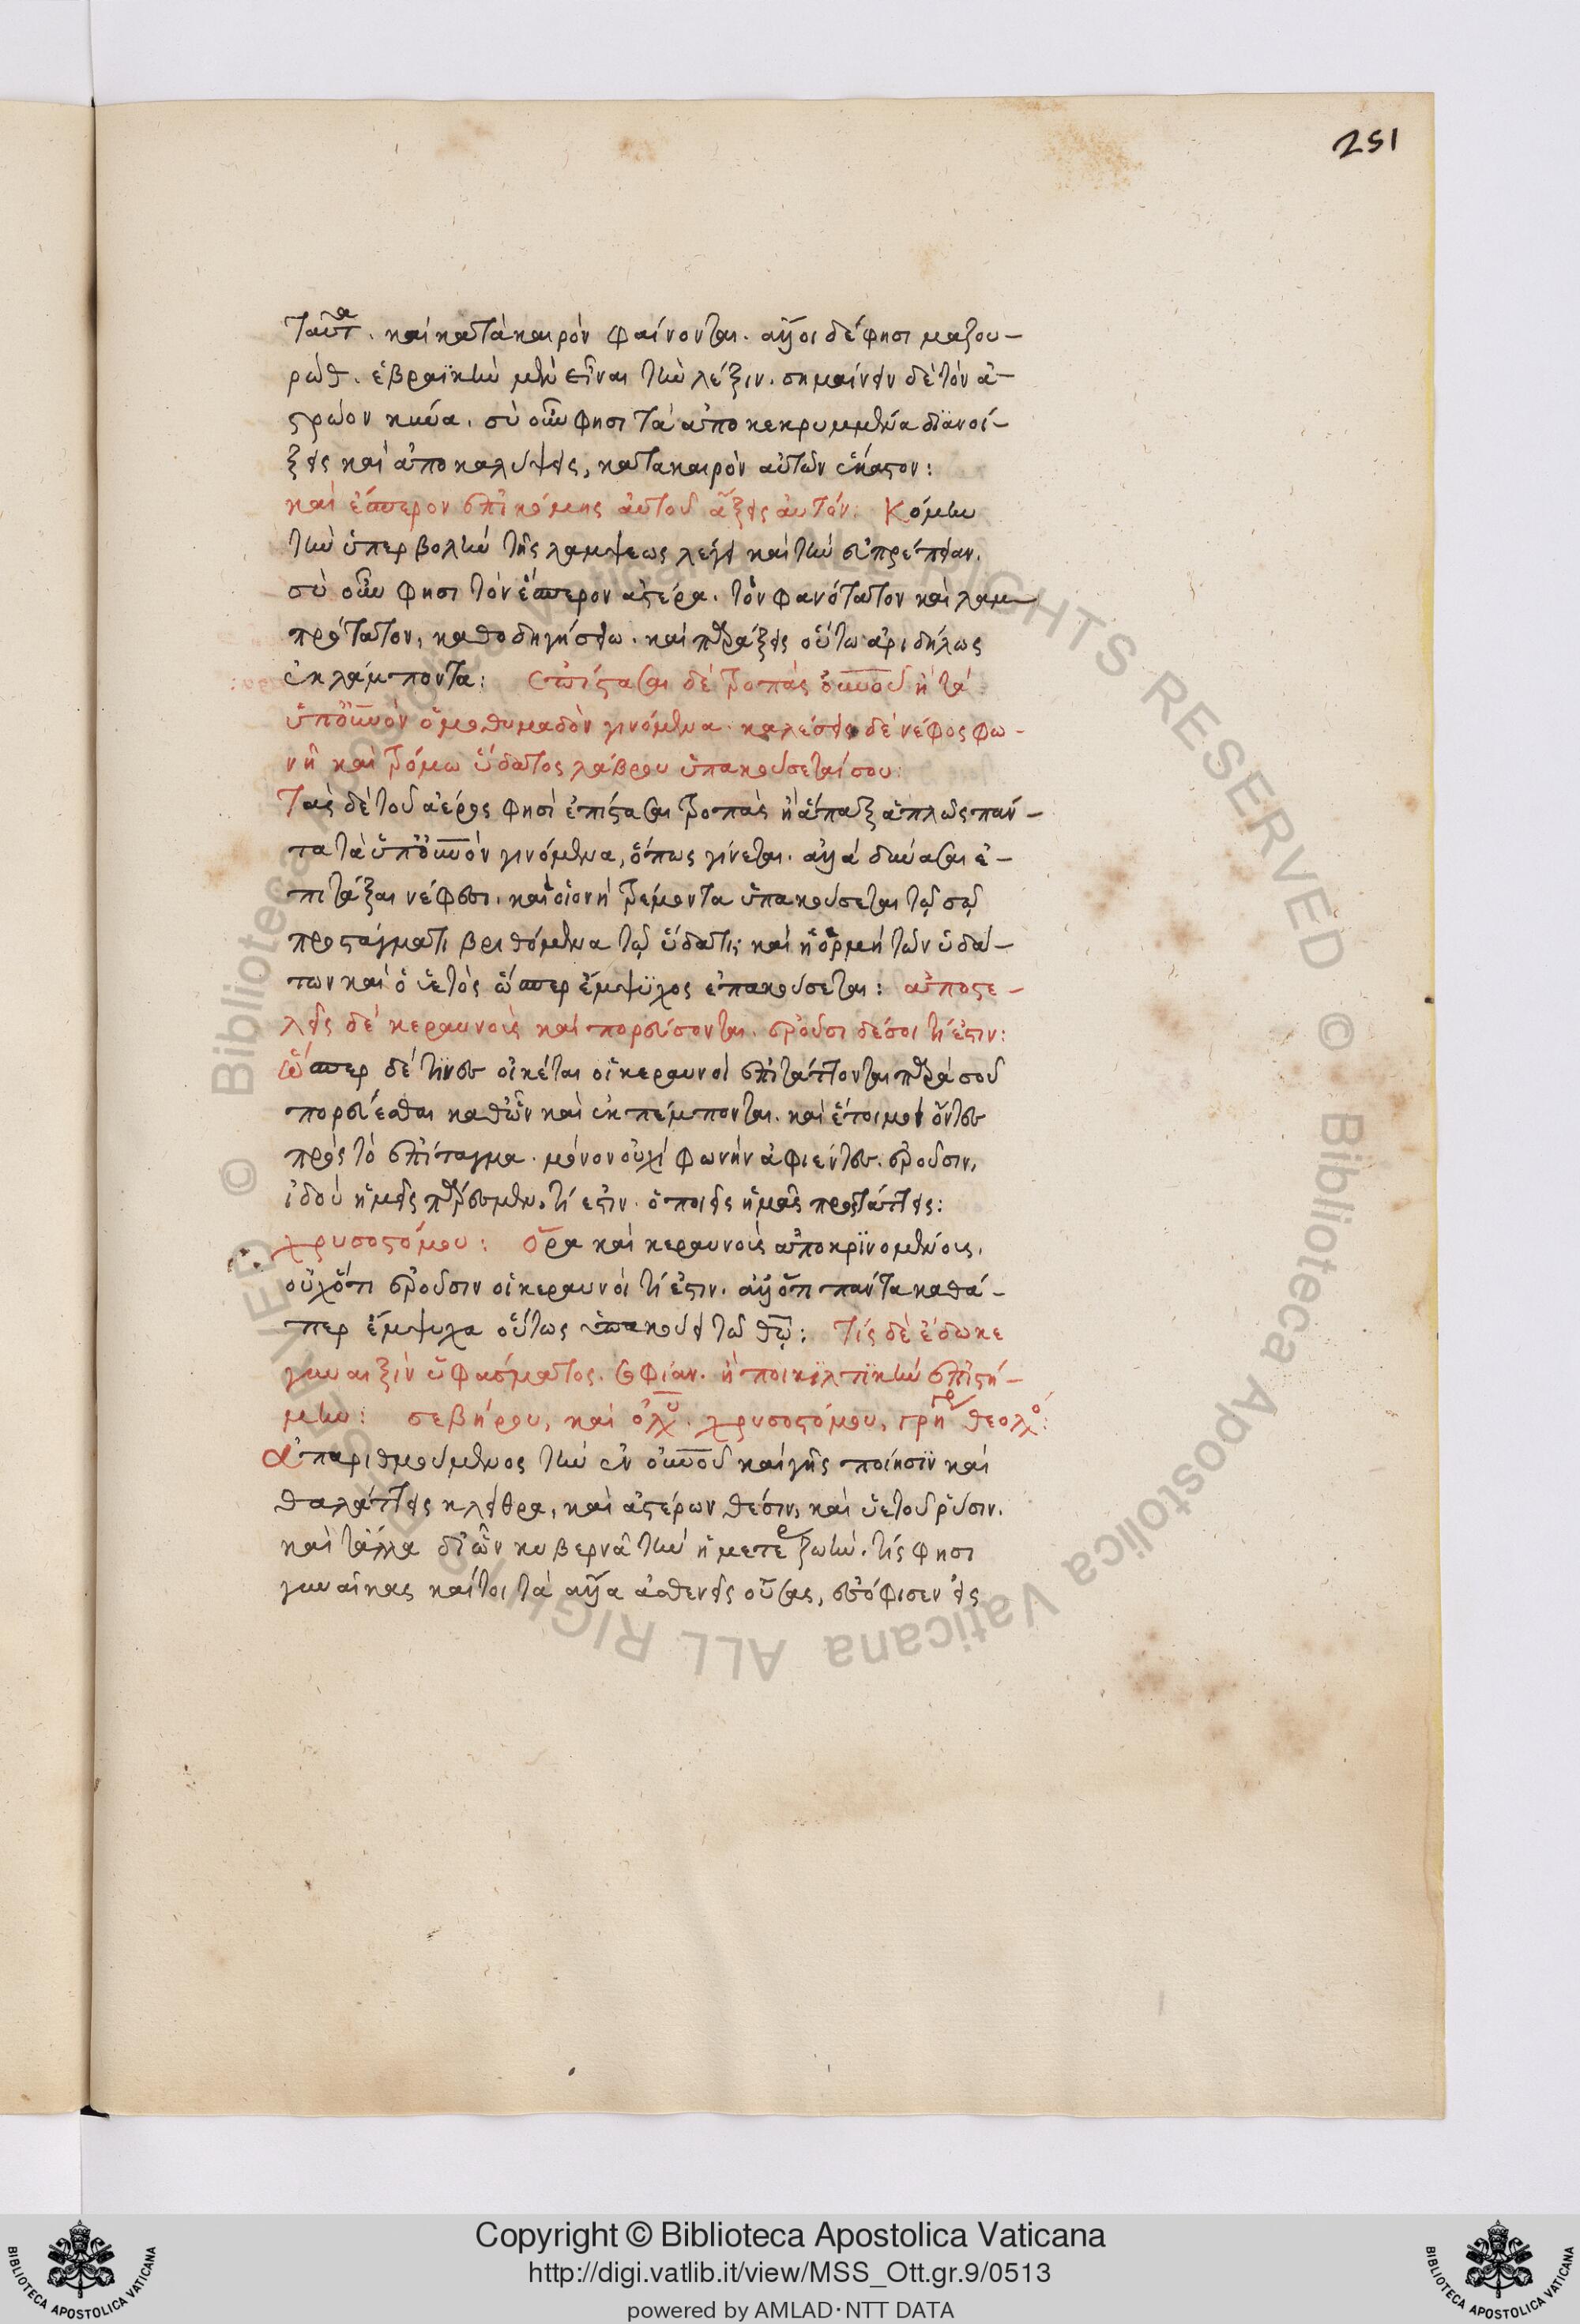 251
ταῦτα. καὶ κατὰ καιρὸν φαίνονται. ἄλλοι δέ φησι μαζου-
ρώθ. ἑβραϊκὴν μὲν εἶναι τὴν λέξιν. σημαίνειν δὲ τὸν ἀ-
στρῶον κύνα. σὺ οὖν φησι τὰ ἀποκεκρυμμένα διανοί-
ξεις καὶ ἀποκαλύψεις, κατὰ καιρὸν αὐτῶν ἕκαστον:
καὶ ἕσπερον ἐπὶ κόμης αὐτοῦ ἄξεις αὐτόν: Κόμην
τὴν ὑπερβολὴν τῆς λάμψεως λέγει καὶ τὴν εὐπρέπειαν.
σὺ οὖν φησι τὸν ἕσπερον ἀστέρα. τὸν φανότατον καὶ λαμ-
πρότατον, καθοδηγήσεις. καὶ παράξεις οὕτω ἀριδήλως
ἐκλάμποντα: ἐπίστασαι δὲ τροπὰς οὐνοῦ ἢ τὰ
ὑπ' οὐνὸν ὁμοθυμαδὸν γινόμενα. καλέσεις δὲ νέφος φω-
νῆ καὶ τρόμω ὕδατος λάβρου ὑπακούσεταί σου:
Τὰς δὲ τοῦ ἀέρος φησὶ ἐπίστασαι τροπὰς ἢ ἅπαξ ἁπλῶς πάν-
τα τὰ ὑπ' οὐνὸν γινόμενα, ὅπως γίνεται. ἀλλὰ δύνασαι ἐ-
πιτάξαι νέφεσι. καὶ οἱονεὶ τρέμοντα ὑπακούσεται τῷ σῷ
προστάγματι βριθόμενα τῷ ὕδατι; καὶ ἡ ὁρμὴ τῶν ὑδά-
των καὶ ὁ ὑετὸς ὥσπερ ἔμψυχος ἐπακούσεται: ἀποστε-
λεῖς δὲ κεραυνοὺς καὶ πορεύσονται. ἐροῦσι δέ σοι τί ἐστιν:
ὥσπερ δέ τινες οἰκέται οἱ κεραυνοὶ ἐπιτάττονται παρὰ σοῦ
πορεύεσθαι καθ' ὧν καὶ ἐκπέμπονται. καὶ ἕτοιμοι ὄντες
πρὸς τὸ ἐπίταγμα. μόνον οὐχὶ φωνὴν ἀφιέντες. ἐροῦσιν,
ἰδοὺ ἡμεῖς πάρεσμεν. τί ἐστιν ὃ ποιεῖν ἡμᾶς προστάττεις:
χρυσοστόμου: ὅρα καὶ κεραυνοὺς ἀποκρινομένους.
οὐχ ὅτι ἐροῦσιν οἱ κεραυνοὶ τί ἐστιν. ἀλλ' ὅτι πάντα καθά-
περ ἔμψυχα οὕτως ὑπακούει τῶ θῶ: Τίς δὲ ἔδωκε
γυναιξὶν ὑφάσματος. σοφίαν. ἢ ποικιλτικὴν ἐπιστή-
μην: σεβήρου, καὶ ὀλυ. χρυσοστόμου, γρη θεολο:
ἀπαριθμούμενος τὴν ἐν οὐνοῦ καὶ γῆς ποίησιν καὶ
θαλάττης κλεῖθρα, καὶ ἀστέρων θέσιν, καὶ ὑετοῦ ῥύσιν.
καὶ τἄλλα δι' ὧν κυβερνᾶ τὴν ἡμετέραν ζωήν. τίς φησι
γυναῖκας καίτοι τὰ ἄλλα ἀσθενεῖς οὔσας, ἐσόφισεν εἰς
Copyright © Biblioteca Apostolica Vaticana
http://digi.vatlib.it/view/MSS_Ott.gr.9/0513
powered by AMLAD · NTT DATA
© Biblioteca Apostolica Vaticana ALL RIGHTS RESERVED © Biblioteca Apostolica Vaticana ALL RIGHTS RESERVED
BIBLIOTECA APOSTOLICA VATICANA
BIBLIOTECA APOSTOLICA VATICANA